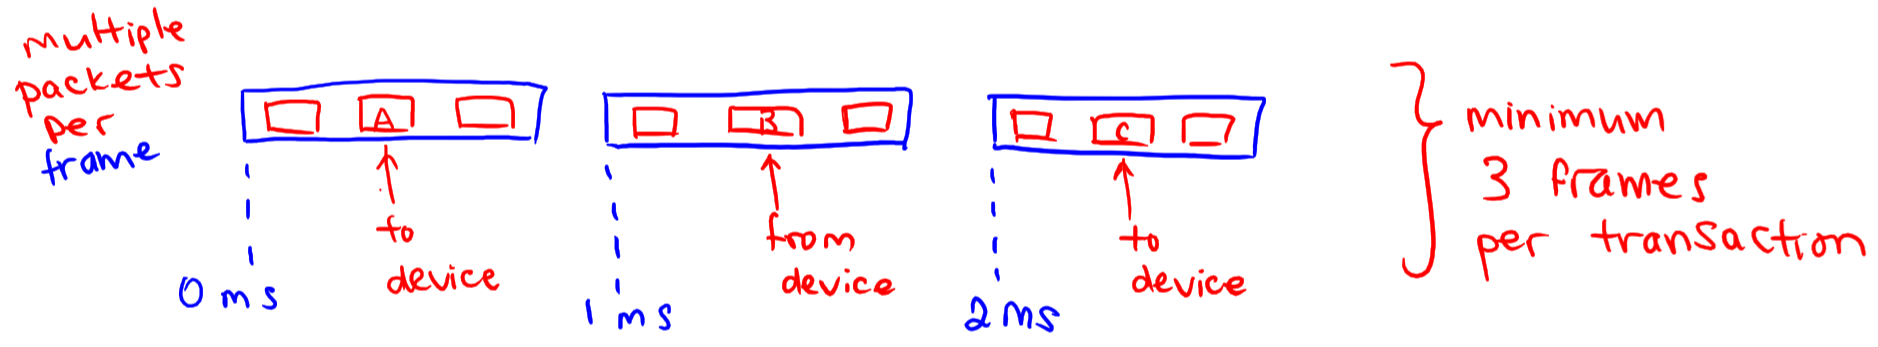 multiple
packets
per
frame
A
B
C
to
device
from
device
to
device
0 ms
1 ms
2 ms
minimum
3 frames
per transaction